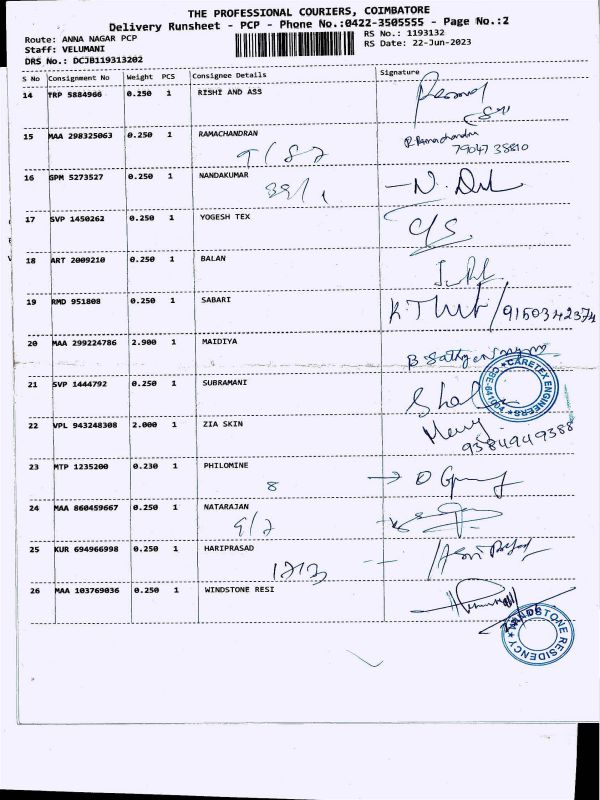 THE PROFESSIONAL COURIERS, COIMBATORE
Delivery Runsheet - PCP - Phone No.:0422-3505555 - Page No.:2
Route: ANNA NAGAR PCP
RS No.: 1193132
Staff: VELUMANI
RS Date: 22-Jun-2023
DRS No.: DCJB119313202
S No Consignment No Weight PCS Consignee Details Signature
14 TRP 5884966 0.250 1 RISHI AND ASS
15 MAA 298325063 0.250 1 RAMACHANDRAN
R Ramachandran
79047 38810
16 GPM 5273527 0.250 1 NANDAKUMAR
17 SVP 1450262 0.250 1 YOGESH TEX
18 ART 2009210 0.250 1 BALAN
19 RMD 951808 0.250 1 SABARI
9150342374
20 MAA 299224786 2.900 1 MAIDIYA
21 SVP 1444792 0.250 1 SUBRAMANI
CARETEX ENGINEERS
22 VPL 943248308 2.000 1 ZIA SKIN
9384949388
23 MTP 1235200 0.230 1 PHILOMINE
8
24 MAA 860459667 0.250 1 NATARAJAN
25 KUR 694966998 0.250 1 HARIPRASAD
26 MAA 103769036 0.250 1 WINDSTONE RESI
WINDSTONE RESIDENCY